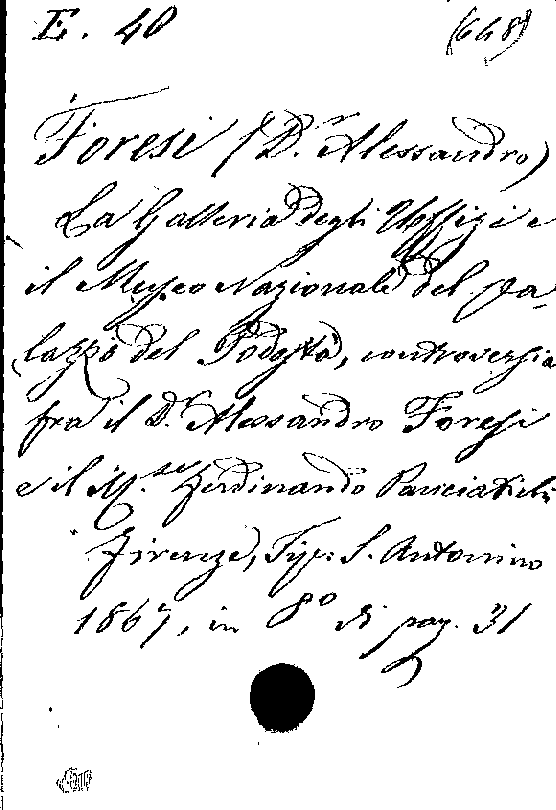 E. 40 (648)
Foresi (D.r Alessandro)
La Galleria degli Uffizi e
il Museo Nazionale del pa-
lazzo del Podestà, controversia
fra il D.r Alessandro Foresi
e il M.se Ferdinando Panciatichi
Firenze, Tip: S. Antonino
1867, in 8º di pag. 31